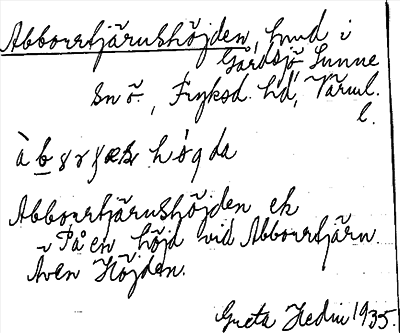 Abborrtjärnshöjden, hmd i
Gårdsjö, Sunne
sn o., Fryksd. hd, Värml.
l.
högda
Abborrtjärnshöjden ek
På en höjd vid Abborrtjärn.
Även Höjden.
Greta Hedin 1935.